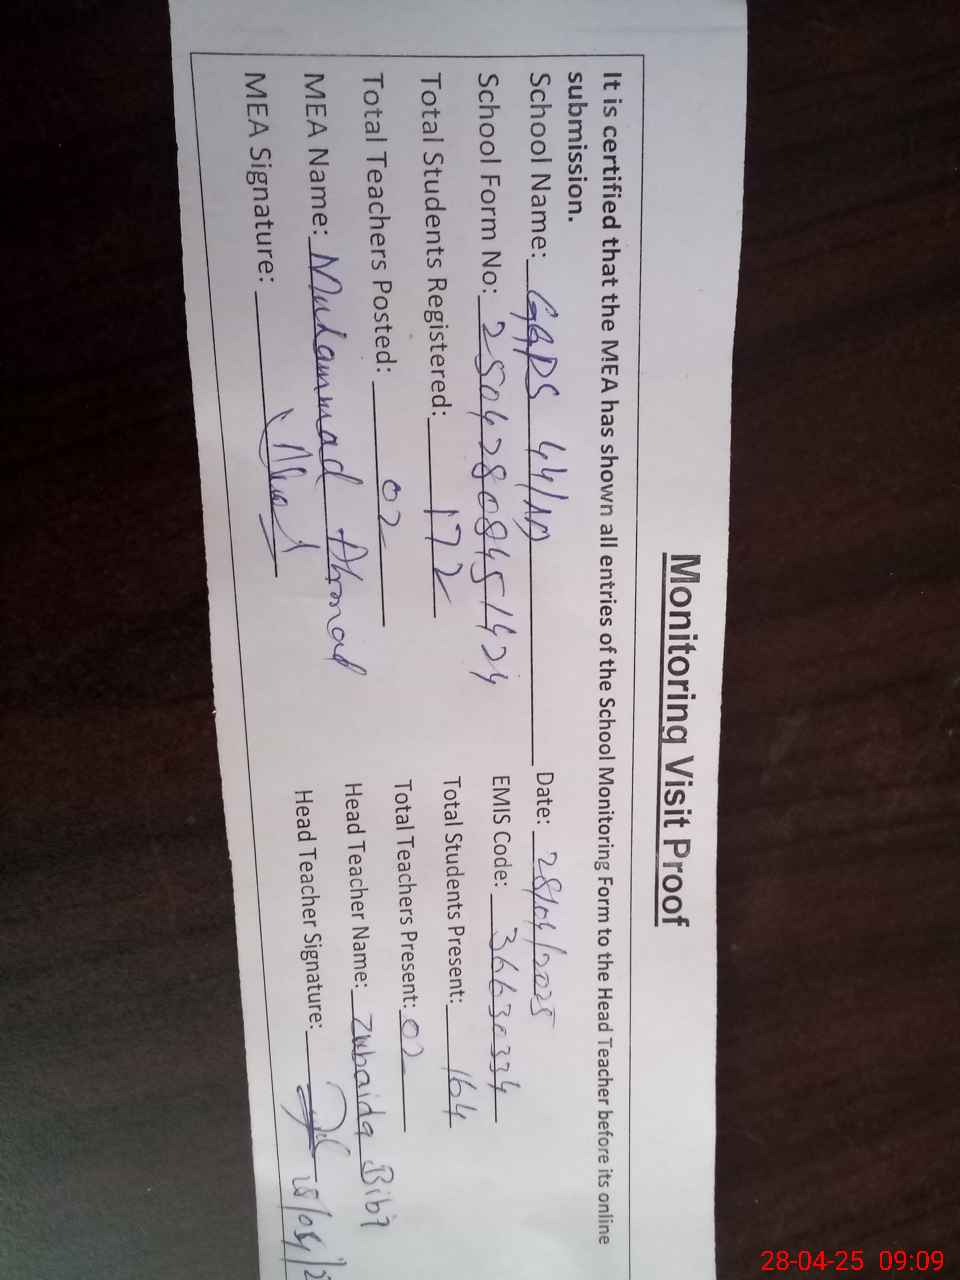 Monitoring Visit Proof
It is certified that the MEA has shown all entries of the School Monitoring Form to the Head Teacher before its online
submission.
School Name: GGPS 44/10 Date: 28/04/2025
School Form No: 25042808451424 EMIS Code: 36630334
Total Students Registered: 172 Total Students Present: 164
Total Teachers Posted: 02 Total Teachers Present: 02
MEA Name: Muhammad Ahmad Head Teacher Name: Zubaida Bibi
MEA Signature: Head Teacher Signature:
28-04-25 09:09